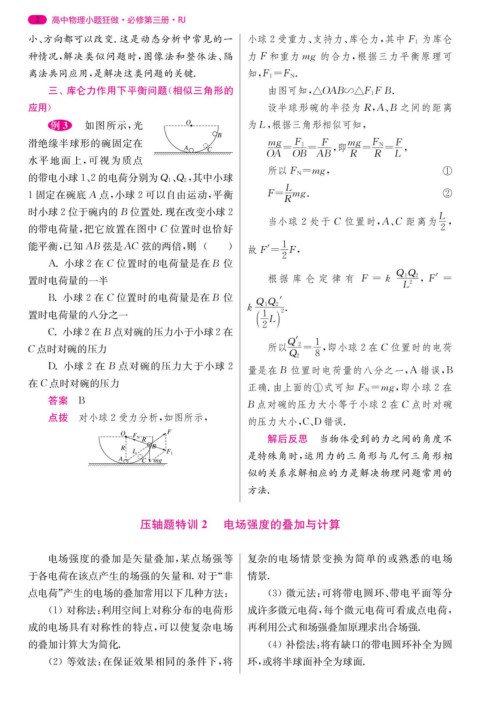 2 高中物理小题狂做·必修第三册·RJ
小、方向都可以改变. 这是动态分析中常见的一
种情况,解决类似问题时,图像法和整体法、隔
离法共同应用,是解决这类问题的关键.
三、库仑力作用下平衡问题(相似三角形的
应用)
例3 如图所示,光
滑绝缘半球形的碗固定在
水平地面上,可视为质点
的带电小球1、2的电荷分别为Q₁、Q₂,其中小球
1固定在碗底A点,小球2可以自由运动,平衡
时小球2位于碗内的B位置处. 现在改变小球2
的带电荷量,把它放置在图中C位置时也恰好
能平衡,已知AB弦是AC弦的两倍,则( )
O
B
A C
A. 小球2在C位置时的电荷量是在B位
置时电荷量的一半
B. 小球2在C位置时的电荷量是在B位
置时电荷量的八分之一
C. 小球2在B点对碗的压力小于小球2在
C点时对碗的压力
D. 小球2在B点对碗的压力大于小球2
在C点时对碗的压力
答案 B
点拨 对小球2受力分析,如图所示,
O F_N F
R R B
L F₁
A C mg
小球2受重力、支持力、库仑力,其中F₁为库仑
力F和重力mg的合力,根据三力平衡原理可
知,F₁=F_N.
由图可知,△OAB∽△F₁FB.
设半球形碗的半径为R,A、B之间的距离
为L,根据三角形相似可知,
mg/OA=F₁/OB=F/AB,即mg/R=F_N/R=F/L,
所以F_N=mg, ①
F=L/R mg. ②
当小球2处于C位置时,A、C距离为L/2,
故F′=1/2 F,
根据库仑定律有F=k Q₁Q₂/L²,F′=
k Q₁Q₂′/(1/2 L)².
所以Q₂′/Q₂=1/8,即小球2在C位置时的电荷
量是在B位置时电荷量的八分之一,A错误,B
正确. 由上面的①式可知F_N=mg,即小球2在
B点对碗的压力大小等于小球2在C点时对碗
的压力大小,C、D错误.
解后反思 当物体受到的力之间的角度不
是特殊角时,运用力的三角形与几何三角形相
似的关系求解相应的力是解决物理问题常用的
方法.
压轴题特训2 电场强度的叠加与计算
电场强度的叠加是矢量叠加,某点场强等
于各电荷在该点产生的场强的矢量和. 对于“非
点电荷”产生的电场的叠加常用以下几种方法:
(1) 对称法:利用空间上对称分布的电荷形
成的电场具有对称性的特点,可以使复杂电场
的叠加计算大为简化.
(2) 等效法:在保证效果相同的条件下,将
复杂的电场情景变换为简单的或熟悉的电场
情景.
(3) 微元法:可将带电圆环、带电平面等分
成许多微元电荷,每个微元电荷可看成点电荷,
再利用公式和场强叠加原理求出合场强.
(4) 补偿法:将有缺口的带电圆环补全为圆
环,或将半球面补全为球面.